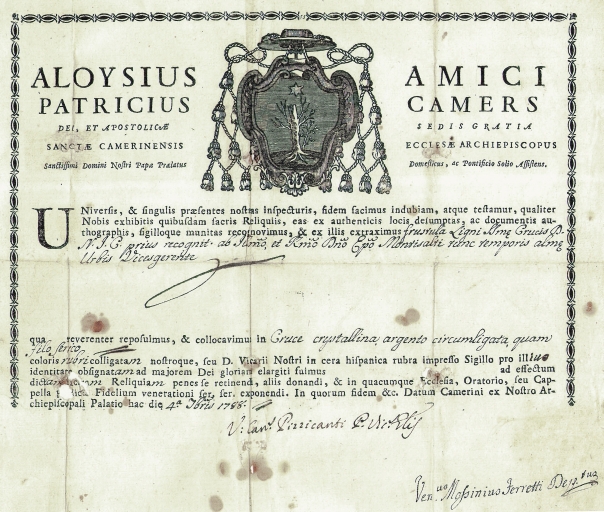 ALOYSIUS AMICI
PATRICIUS CAMERS
DEI, ET APOSTOLICÆ SEDIS GRATIA
SANCTÆ CAMERINENSIS ECCLESÆ ARCHIEPISCOPUS
Sanctissimi Domini Nostri Papæ Prælatus Domesticus, ac Pontificio Solio Assistens.
UNiversis, & singulis præsentes nostras inspecturis, fidem facimus indubiam, atque testamur, qualiter
Nobis exhibitis quibusdam sacris Reliquiis, eas ex authenticis locis desumptas, ac documentis au-
thographis, sigilloque munitas recognovimus, & ex illis extraximus frustula Ligni SSmæ Crucis D.
N. J. C. prius recognit. ab Illmo, et Rmo Dno Epo Montisalti nunc temporis almæ
Urbis Vicesgerente
qua reverenter reposuimus, & collocavimus in Cruce crystallina, argento circumligata, quam
filo serico
coloris rubri colligatam nostroque, seu D. Vicarii Nostri in cera hispanica rubra impresso Sigillo pro illius
identitate obsignatam ad majorem Dei gloriam elargiti fuimus ad effectum
Reliquiam penes se retinendi, aliis donandi, & in quacumque Ecclesia, Oratorio, seu Cap-
pella Fidelium venerationi ser. ser. exponendi. In quorum fidem &c. Datum Camerini ex Nostro Ar-
chiepiscopali Palatio hac die 4a 1788.
Pizzicanti
Ferretti